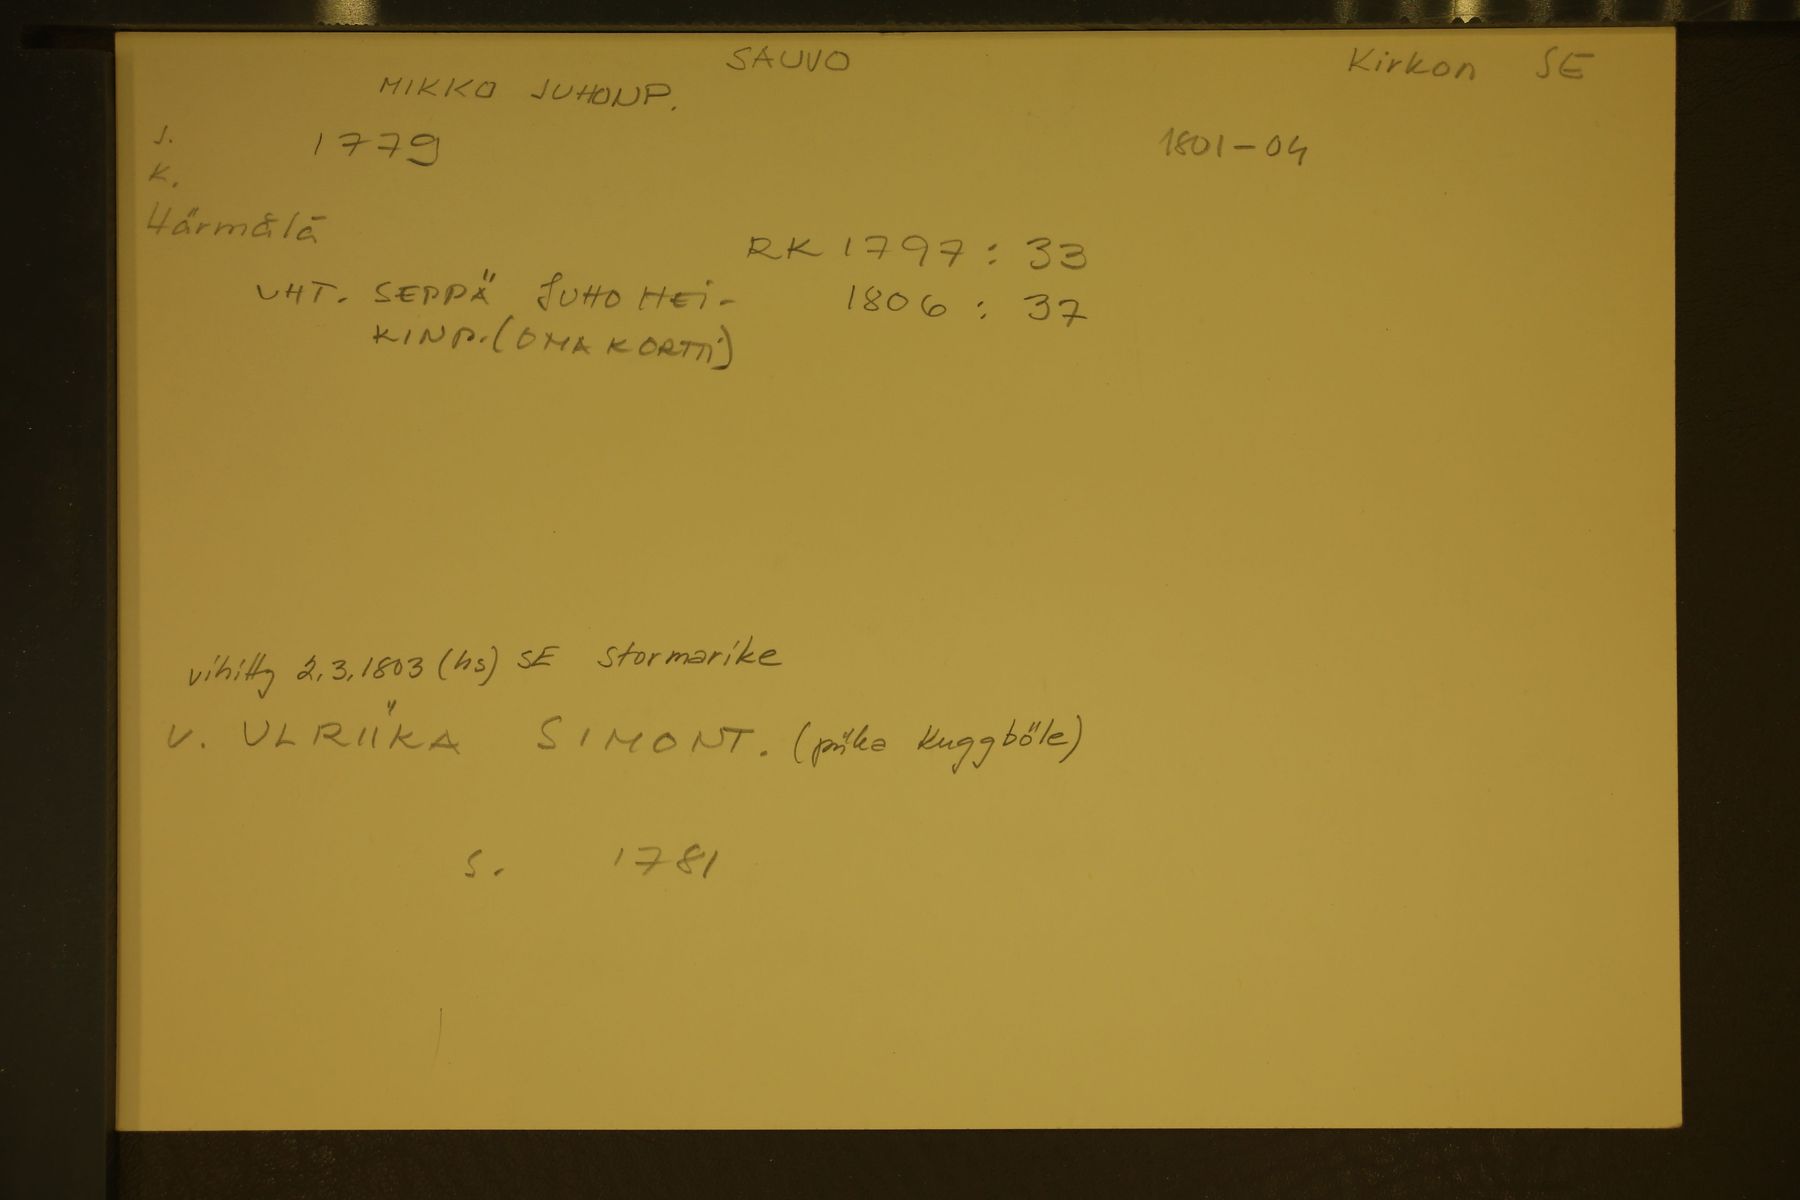 SAUVO
Kirkon SE
MIKKO JUHONP.
s. 1779
1801-04
K.
Härmälä
RK 1797 : 33
VHT. SEPPÄ JUHO HEI-
1806 : 37
KINP. (OMA KORTTI)
vihitty 2.3.1803 (hs) SE Stormarike
V. ULRIIKA SIMONT. (piika Kuggböle)
S. 1781